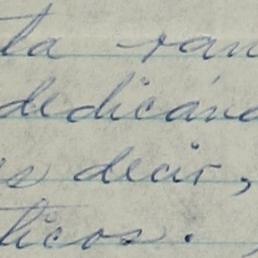 ta ran
dedicánd
es decir,
ticos.